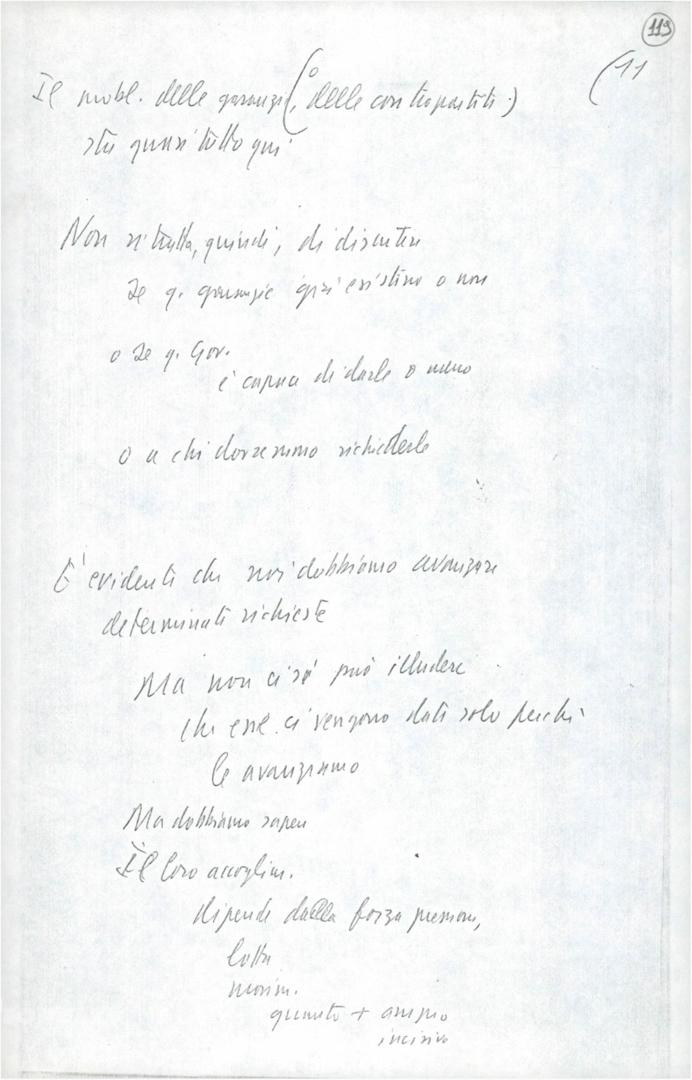 119
(11
Il probl. delle garanzie, (o delle contropartite)
sta quasi tutto qui
Non si tratta, quindi, di discutere
se q. garanzie oggi esistono o non
o se q. Gov.
è capace di darle o meno
o a chi dovremmo richiederle
E' evidente che noi dobbiamo avanzare
determinate richieste
Ma non ci si può illudere
che esse ci vengono date solo perché
le avanziamo
Ma dobbiamo sapere
Il loro accoglim.
dipende dalla forza pressione,
lotta
movim.
quanto + ampio
incisivo